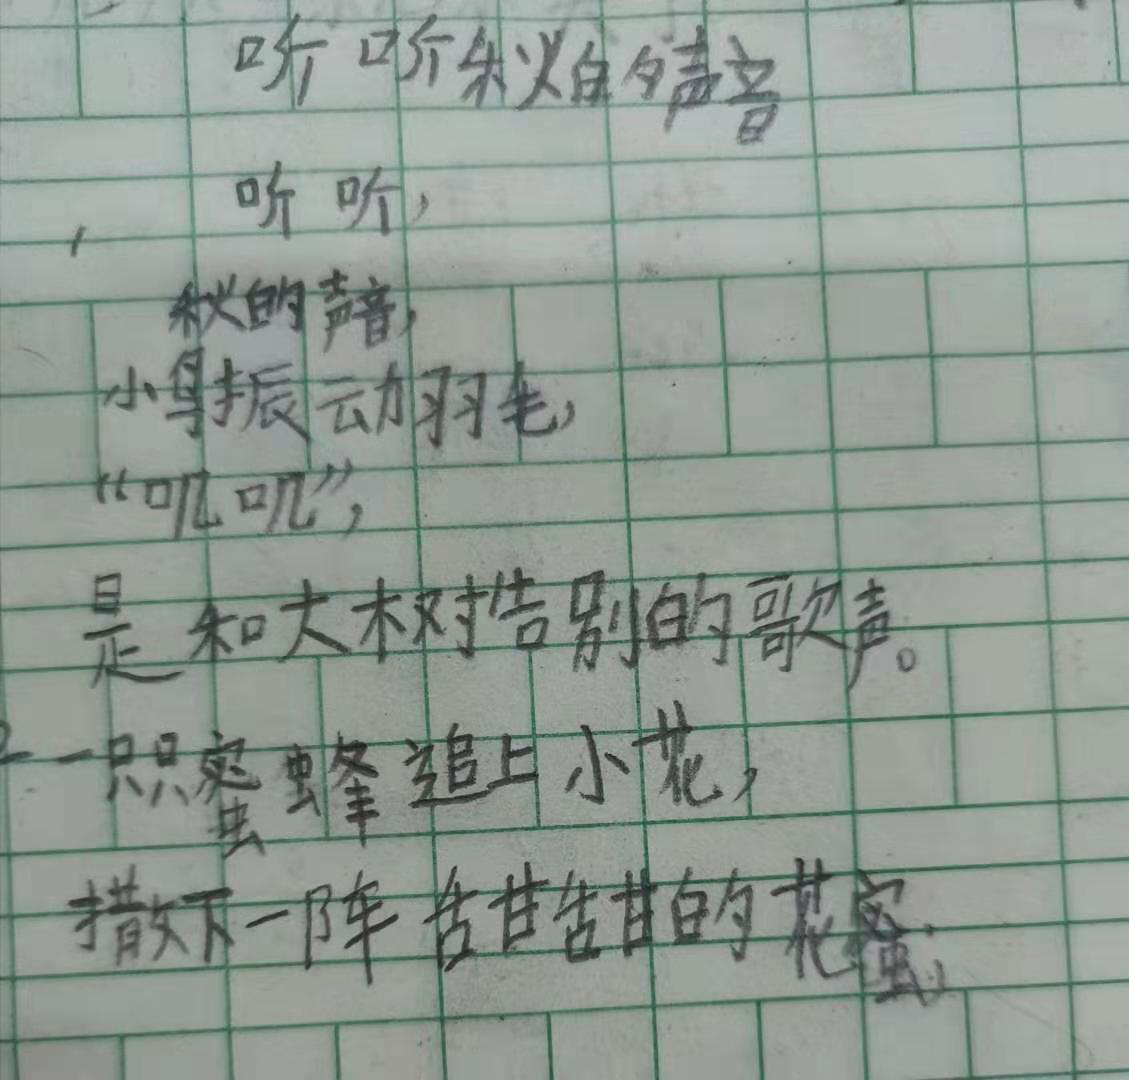 听听秋的声音
听听，
秋的声音，
小鸟振动羽毛，
“叽叽”，
是和大树告别的歌声。
一只只蜜蜂追上小花，
撒下一阵甜甜的花蜜，